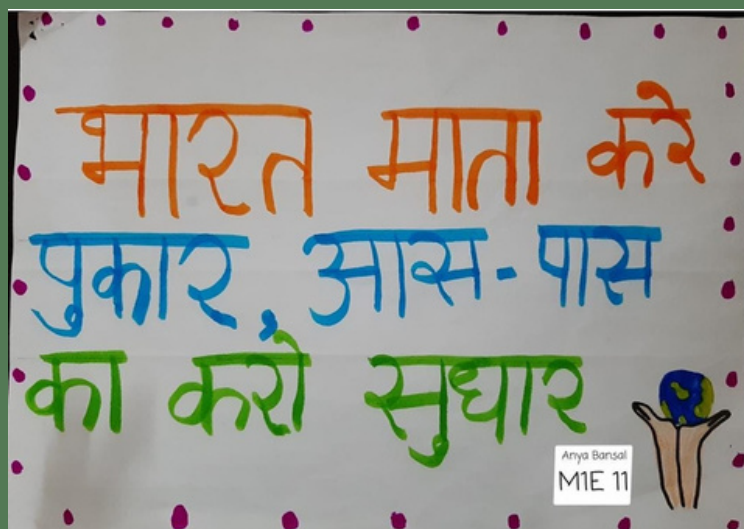 भारत माता करे
पुकार, आस-पास
का करो सुधार
Anya Bansal
M1E 11